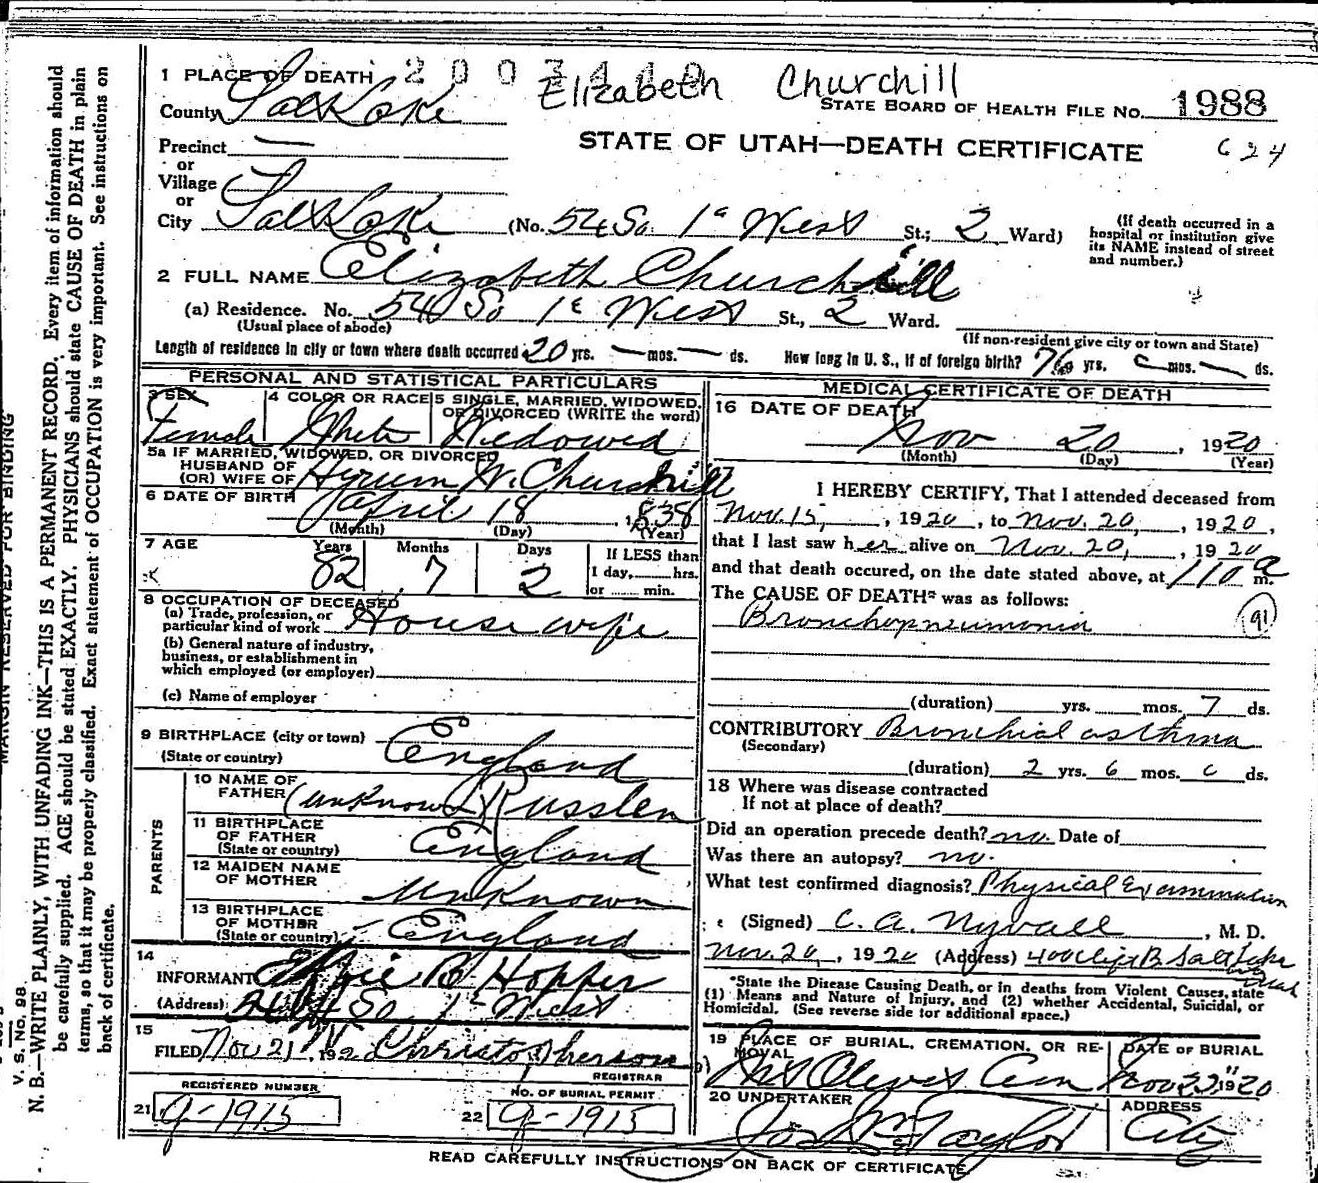 1 PLACE OF DEATH
Elizabeth Churchill
County Salt Lake
STATE BOARD OF HEALTH FILE NO. 1988
STATE OF UTAH—DEATH CERTIFICATE
624
Precinct —
or
Village
or
City Salt Lake (No. 54 So. 1st West St.; 2 Ward)
(If death occurred in a hospital or institution give its NAME instead of street and number.)
2 FULL NAME Elizabeth Churchill
(a) Residence. No. 54 So 1st West St., 2 Ward.
(Usual place of abode)
(If non-resident give city or town and State)
Length of residence in city or town where death occurred 20 yrs. — mos. — ds. How long in U. S., if of foreign birth? 76 yrs. — mos. — ds.
PERSONAL AND STATISTICAL PARTICULARS
3 SEX
Female
4 COLOR OR RACE
White
5 SINGLE, MARRIED, WIDOWED, OR DIVORCED (WRITE the word)
Widowed
5a IF MARRIED, WIDOWED, OR DIVORCED
HUSBAND OF
(OR) WIFE OF Hyrum W. Churchill
6 DATE OF BIRTH
April 18, 1838
(Month) (Day) (Year)
7 AGE
Years Months Days
82 7 2
If LESS than
1 day, hrs.
or min.
8 OCCUPATION OF DECEASED
(a) Trade, profession, or
particular kind of work House wife
(b) General nature of industry,
business, or establishment in
which employed (or employer)
(c) Name of employer
9 BIRTHPLACE (city or town)
(State or country) England
PARENTS
10 NAME OF
FATHER (unknown) Russlen
11 BIRTHPLACE
OF FATHER
(State or country) England
12 MAIDEN NAME
OF MOTHER Unknown
13 BIRTHPLACE
OF MOTHER
(State or country) England
14
INFORMANT Effie B. Hopper
(Address) So 1st West
15
FILED Nov 21, 192 Christopherson
REGISTRAR
REGISTERED NUMBER
21 g-1915
NO. OF BURIAL PERMIT
22 g-1915
MEDICAL CERTIFICATE OF DEATH
16 DATE OF DEATH
Nov 20, 1920
(Month) (Day) (Year)
I HEREBY CERTIFY, That I attended deceased from
Nov. 15, 1920, to Nov. 20, 1920,
that I last saw her alive on Nov. 20, 1920
and that death occured, on the date stated above, at 110 a m.
The CAUSE OF DEATH* was as follows:
Bronchopneumonia
91
(duration) yrs. mos. 7 ds.
CONTRIBUTORY Bronchial asthma
(Secondary)
(duration) 2 yrs. 6 mos. 0 ds.
18 Where was disease contracted
If not at place of death?
Did an operation precede death? no. Date of
Was there an autopsy? no.
What test confirmed diagnosis? Physical Examination
(Signed) C. A. Nyvall, M. D.
Nov. 20, 1920 (Address) 400 Clift B. Salt Lake
Utah
*State the Disease Causing Death, or in deaths from Violent Causes, state
(1) Means and Nature of Injury, and (2) whether Accidental, Suicidal, or
Homicidal. (See reverse side for additional space.)
19 PLACE OF BURIAL, CREMATION, OR RE-
MOVAL
Mt Olivet Cem
DATE OF BURIAL
Nov 22" 1920
20 UNDERTAKER
Jos. Wm. Taylor
ADDRESS
City
READ CAREFULLY INSTRUCTIONS ON BACK OF CERTIFICATE
MARGIN RESERVED FOR BINDING
V. S. No. 98
N. B.—WRITE PLAINLY, WITH UNFADING INK—THIS IS A PERMANENT RECORD. Every item of information should
be carefully supplied. AGE should be stated EXACTLY. PHYSICIANS should state CAUSE OF DEATH in plain
terms, so that it may be properly classified. Exact statement of OCCUPATION is very important. See instructions on
back of certificate.